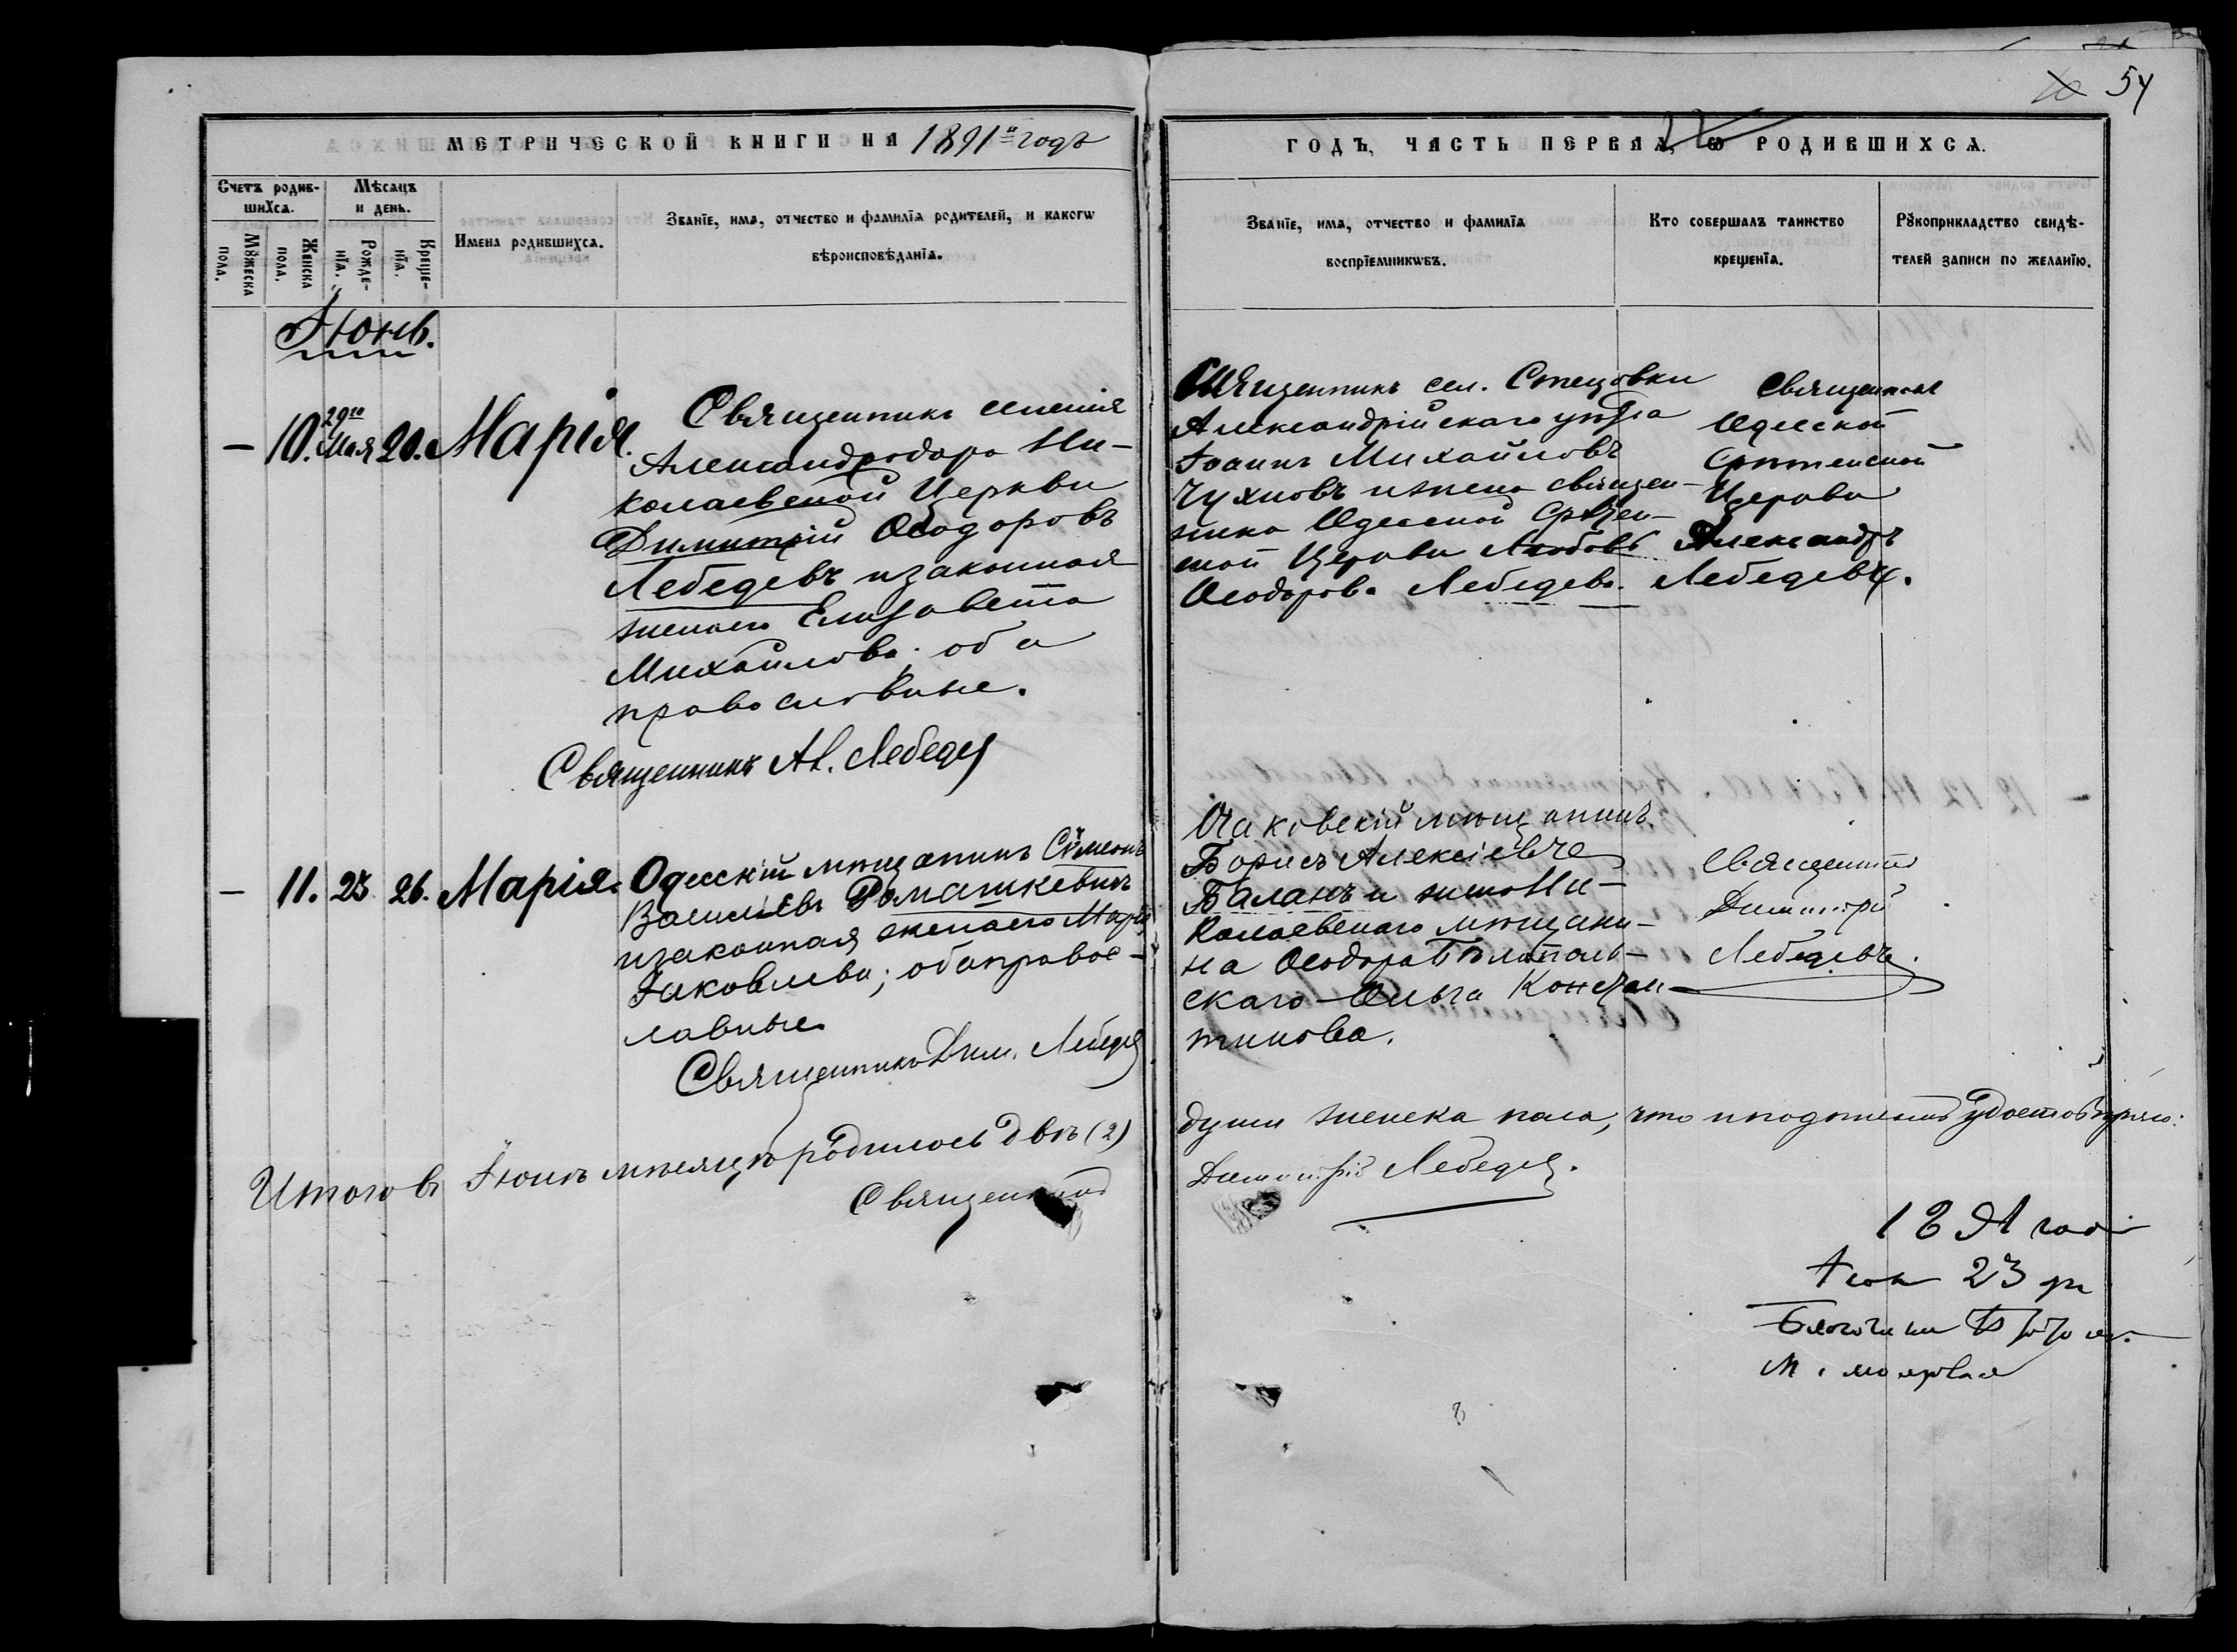 54
МЕТРИЧЕСКОЙ КНИГИ НА 1891й годъ
ГОДЪ, ЧАСТЬ ПЕРВАЯ, Ѡ РОДИВШИХСѦ.
Счетъ родив-
шихсѧ.
Мѣсѧцъ
и день.
Мꙋжеска
пола.
Женска
пола.
Рожде-
нїѧ.
Креще-
нїѧ.
Имена родившихсѧ.
Званїе, имѧ, отчество и фамилїѧ родителей, и какогѡ
вѣроисповѣданїѧ.
Званїе, имѧ, отчество и фамилїѧ
воспрїемникѡвъ.
Кто совершалъ таинство
крещенїѧ.
Рꙋкоприкладство свидѣ-
телей записи по желанїю.
Іюнь.
— 10. 29го Мая 20. Марія.
Священникъ
Александродара Ни-
колаевской Церкви
Димитрій Ѳеодоровъ
Лебедевъ и законная
жена его Елизавета
Михайлова; оба
православные.
Священникъ Ал. Лебедевъ
Священникъ сел. Стецовки
Александрійскаго уѣзда
Іоаннъ Михайловъ
Чухновъ и жена священ-
ника Одесской Срѣтен-
ской Церкви Любовь
Ѳеодорова Лебедева.
Священникъ
Одесской
Срѣтенской
Церкви
Александръ
Лебедевъ.
— 11. 23 26. Марія.
Одесскій мѣщанинъ Сѵмеонъ
Васильевъ Ромашкевичъ
и законная жена его Марія
Іаковлева; оба правос-
лавные.
Священникъ Дим. Лебедевъ
Очаковскій мѣщанинъ
Борисъ Алексіевъ
Баланъ и жена Ни-
колаевскаго мѣщани-
на Ѳеодора Бѣлополь-
скаго Ольга Констан-
тинова.
Священникъ
Димитрій
Лебедевъ.
Итого въ Іюнѣ мѣсяцѣ родилось двѣ (2)
души женска пола, что и подписомъ удостовѣряю:
Священникъ
Димитрій Лебедевъ.
1891 года
Іюн 23 дн